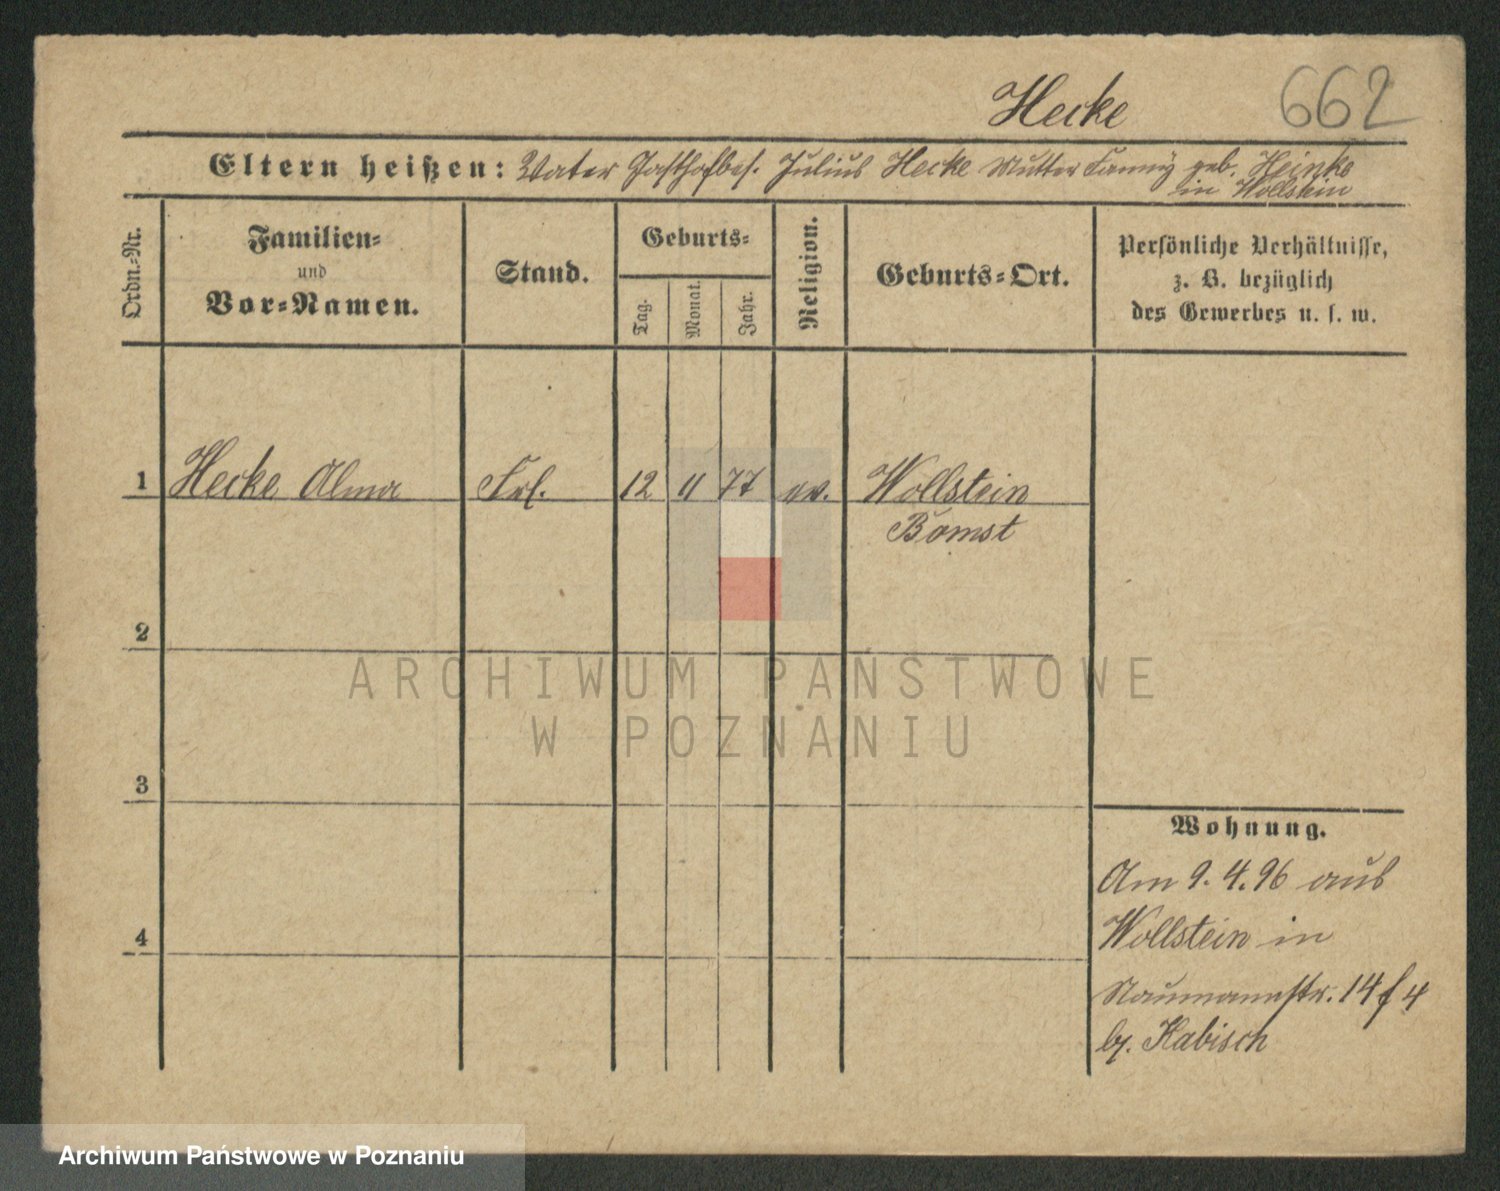 Hecke 662
Eltern heißen: Vater Gasthofbes. Julius Hecke Mutter Fanny geb. Heinke
in Wollstein
Ordn.-Nr.
Familien-
und
Vor-Namen.
Stand.
Geburts-
Tag.
Monat.
Jahr.
Religion.
Geburts-Ort.
Persönliche Verhältnisse,
z. B. bezüglich
des Gewerbes u. s. w.
1 Hecke Alma Frl. 12 11 77 ev. Wollstein
Bomst
2
ARCHIWUM PAŃSTWOWE
W POZNANIU
3
Wohnung.
Am 9.4.96 aus
Wollstein in
4
Naumannstr. 14 f 4
by. Kabisch
Archiwum Państwowe w Poznaniu